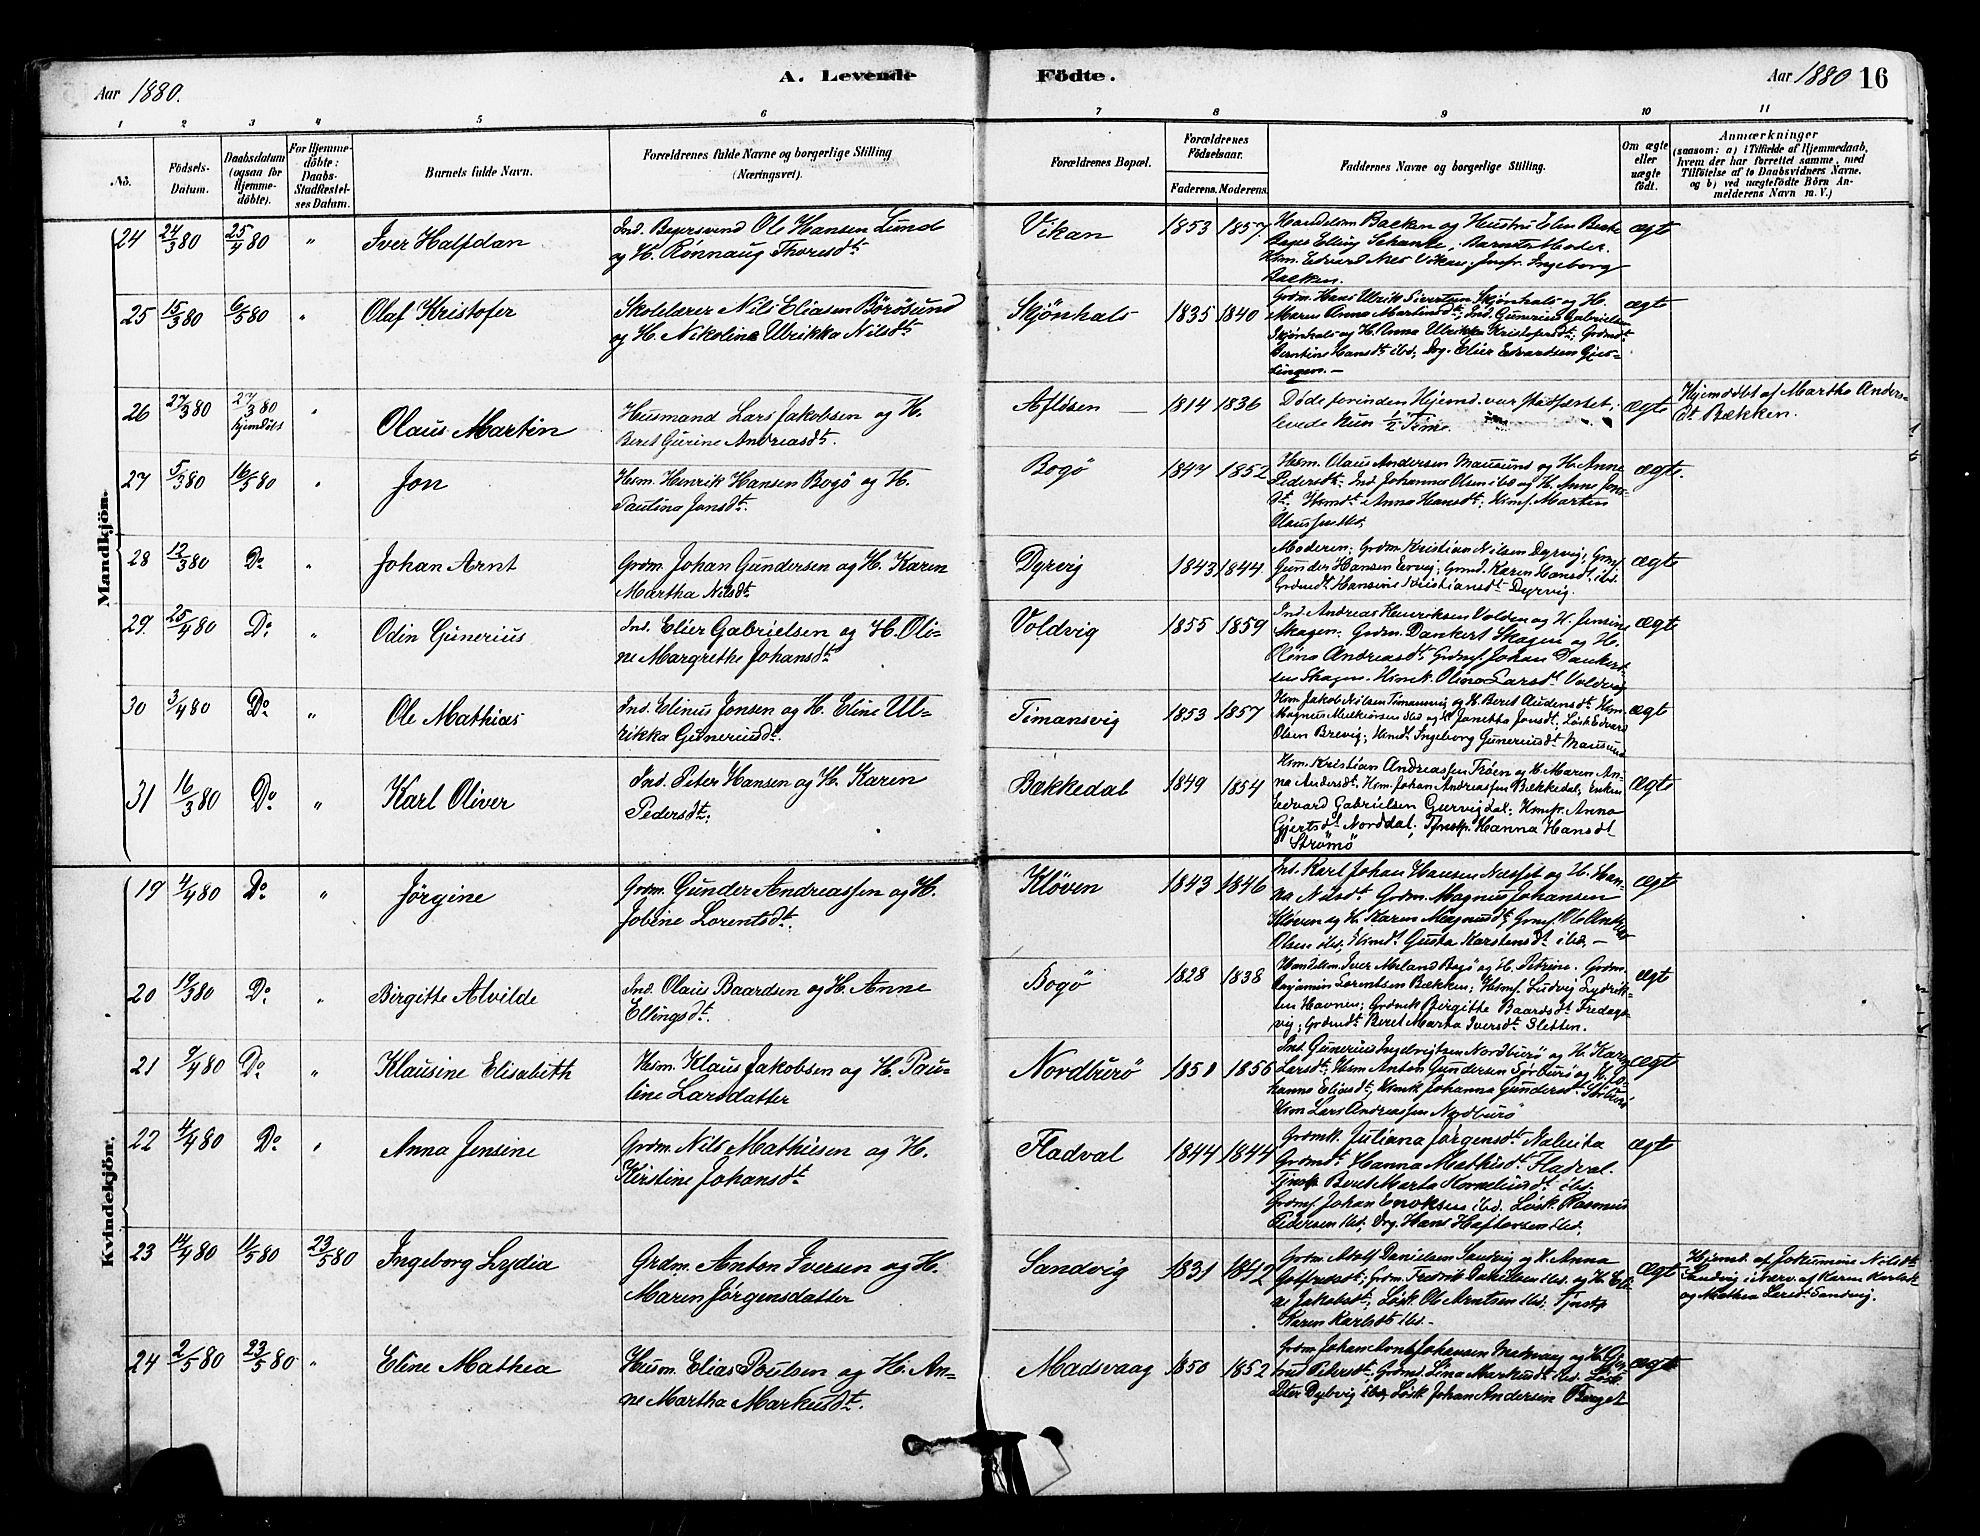 Aar 1880.
A. Levende
Födte.
Aar 1880
16
1 2 3 4 5 6 7 8 9 10 11
No.
Födsels-
Datum.
Daabsdatum
(ogsaa for
Hjemme-
döbte).
For Hjemme-
döbte:
Daabs-
Stadfæstel-
ses Datum.
Barnets fulde Navn.
Forældrenes fulde Navne og borgerlige Stilling
(Næringsvei).
Forældrenes Bopæl.
Forældrenes
Födselsaar.
Faderens. Moderens.
Faddernes Navne og borgerlige Stilling.
Om ægte
eller
uægte
födt.
Anmærkninger
(saasom: a) i Tilfælde af Hjemmedaab,
hvem der har forrettet samme, med
Tilföielse af to Daabsvidners Navne.
og b) ved uægtefödte Börn An-
melderens Navn m. V.)
Mandkjön.
24 24/3 80 25/4 80 " Iver Halfdan
Ind. Ole Hansen Lund
og H. Rønnaug Thoresdt
Vikan 1853 1857
Handelsm. Backen og Hustru Elen
Elling Schanke, Barnets Moder.
Hsm. Edvard Vikan, Jomfr. Ingeborg
Backen.
ægte
25 15/3 80 6/5 80 " Olaf Kristofer
Skolelærer Nils Eliasen Börösund
og H. Nikoline Ulrikka Nilsdt
Skjönhals 1835 1840
Grdm. Hans Ulrik Sivertsen Skjönhals og H.
Maren Anna Martinsdt; Ind. Gunerius Gabrielsen
Skjönhals og H. Anna Ulrikka Kristofersdt; Grdmdt.
Berntine Hansdt ibd; Drg. Elier Edvardsen Gjes-
lingen. —
ægte
26 27/3 80 27/3 80 " Olaus Martin
hjemdöbt
Husmand Lars Jakobsen og H.
Beret Gurine Andreasdt.
Aflösen 1814 1836
Döde forinden Hjemd. var stadfæstet;
levede kun 1/2 Time.
ægte
Hjemdöbt af Martha Anders-
dt Bækken.
27 5/3 80 16/5 80 " Jon
Hsm. Henrik Hansen Bogö og H.
Paulina Jonsdt.
Bogö 1847 1852
Hsm. Olaus Andersen Mausund og H. Anne
Pedersdt. Ind. Johannes Olsen ibd og H. Anne Jons-
dt. Hsmdt. Anna Hansdt; Hsmf. Martin
Olaussen ibd;
ægte.
28 12/3 80 Do " Johan Arnt
Grdm. Johan Gundersen og H. Karen
Martha Nilsdt.
Dyrvig 1843 1844
Moderen; Grdm. Kristian Nilsen Dyrvig; Grmf.
Gunder Hansen Ervig; Grmd. Karen Hansdt ibd.
Grdmdt Hansine Kristiansdt Dyrvig.
ægte
29. 25/4 80 Do " Odin Gunerius
Ind. Elier Gabrielsen og H. Oli-
ne Margrethe Johansdt
Voldvig 1855 1859
Ind. Andreas Henriksen Volden og H. Jensine
Skagen; Grdm. Dankert Skagen og H.
Olina Andreasdt; Grdmf. Johan Dankert-
sen Skagen. Hsmk. Olina Larsdt Voldvig
ægte
30 3/4 80 Do " Ole Mathias
Ind. Elinus Jonsen og H. Eline Ul-
rikka Guneriusdt.
Timansvig 1853 1857
Hsm. Jakob Nilsen Timansvig og H. Beret Audensdt. Hsm.
Magnus Melkiorsen ibd og H. Janetta Jonsdt; Löskf. Edvard
Olsen Brevig; Hsmdt. Ingeborg Guneriusdt Mausund
ægte
31 16/3 80 Do " Karl Oliver
Ind. Peter Hansen og H. Karen
Pedersdt;
Bækkedal 1849 1854
Hsm. Kristian Andreassen Tröen og H. Maren An-
na Andersdt. Hsm. Johan Andreassen Bækkedal; Enkem.
Edvard Gabrielsen Gurvigdal; Hsmfr. Anna
Gjertsdt Norddal; Tjenstp. Hanna Hansdt
Strömö
ægte
Kvindekjön.
19 4/4 80 Do " Jörgine
Grdm. Gunder Andreassen og H.
Jobine Lorentsdt.
Klöven 1843 1846
Ind. Karl Johan Hansen Næsset og H. Han-
na Nilsdt. Grdm. Magnus Johansen
Klöven og H. Karen Magnusdt; Grmf. Ole Anton
Olsen ibd; Hsmdt. Gusta Karstensdt ibd. —
ægte
20 19/3 80 Do " Birgitte Alvilde
Ind. Olaus Baardsen og H. Anne
Ellingsdt.
Bogö 1828 1838
Handelsm. Iver Meland Bogö og H. Petrine. Grdm.
Benjamin Lorentsen Bækken; Hsmf. Ludvig Lydrik-
sen Havnen; Grdmk. Birgitte Baardsdt Fredags-
vig; Grdmdt. Beret Marta Iversdt Sletten.
ægte
21 9/4 80 Do " Klausine Elisabeth
Hsm. Klaus Jakobsen og H. Pau-
line Larsdatter
Nordburö 1851 1856
Ind. Gunerius Ingebrigtsen Nordburö og H. Karen
Larsdt; Hsm. Anton Gundersen Sörburö og H. Jo-
hanna Eliasdt; Hsmk. Johanna Gundersdt Sörburö
Hsm. Lars Andreassen Nordburö
ægte
22 4/4 80 Do " Anna Jensine
Grdm. Nils Mathisen og H.
Kirstine Johansdt.
Fladval 1844 1844
Grdmk. Juliana Jörgensdt
Grdmdt. Hanna Mathisdt Fladval.
Tjnstp. Beret Marta Korneliusdt ibd.
Grdmf. Johan Enoksen ibd. Löskf. Rasmus
Pedersen ibd; Drg. Hans Haftorsen ibd.
ægte
23 14/4 80 11/5 80 23/5 80 Ingeborg Lydia
Grdm. Anton Iversen og H.
Maren Jörgensdatter
Sandvig 1831 1842
Grdm. Adolf Danielsen Sandvig og H. Anna
Gotfredsdt; Grdm. Fredrik Danielsen ibd. og H. Eli-
ne Jakobsdt; Löskf. Ole Arntsen ibd. Tjnstp.
Karen Karlsdt ibd. -
ægte
Hjemd. af Jokumine Nilsdt
Sandvig i Nærv. af Karen Karlsdt
og Mathea Larsdt Sandvig.
24 2/5 80 23/5 80 " Eline Mathea
Husm. Elias Poulsen og H. An-
ne Martha Markusdt.
Madsvaag 1850 1852
Grdm. Johan Arnt Johansen Madsvaag og H. Gjer-
trud Pedersdt; Grdmd. Lina Markusdt ibd. Löskf.
Peter Dybvig ibd; Löskf. Johan Andersen Berget
ægte